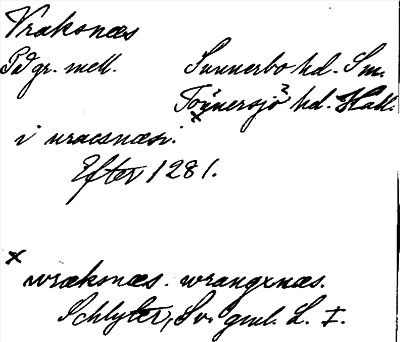 Vræksnæs
På gr. mell. Sunnerbo hd. Sm.
Tönnersjö? hd. Hall.
x
i uracsnæsi.
Efter 1281.
x
wræksnæs. wrangxnæs.
Schlyter, Sv. gml. L. I.